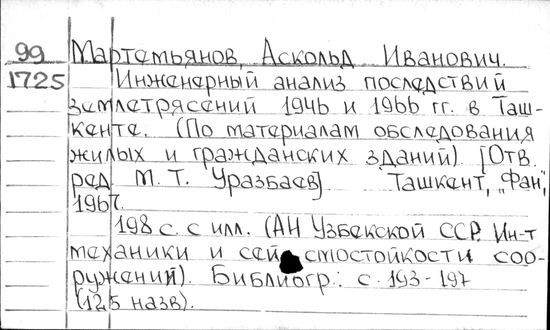 99 Мартемьянов, Аскольд Иванович.
1725 Инженерный анализ последствий
землетрясений 1946 и 1966 гг. в Таш-
кенте. (По материалам обследования
жилых и гражданских зданий). [Отв.
ред. М. Т. Уразбаев]. Ташкент, „Фан",
1967.
198 с. с илл. (АН Узбекской ССР. Ин-т
механики и сейсмостойкости соо-
ружений). Библиогр.: с. 193-197
(125 назв).